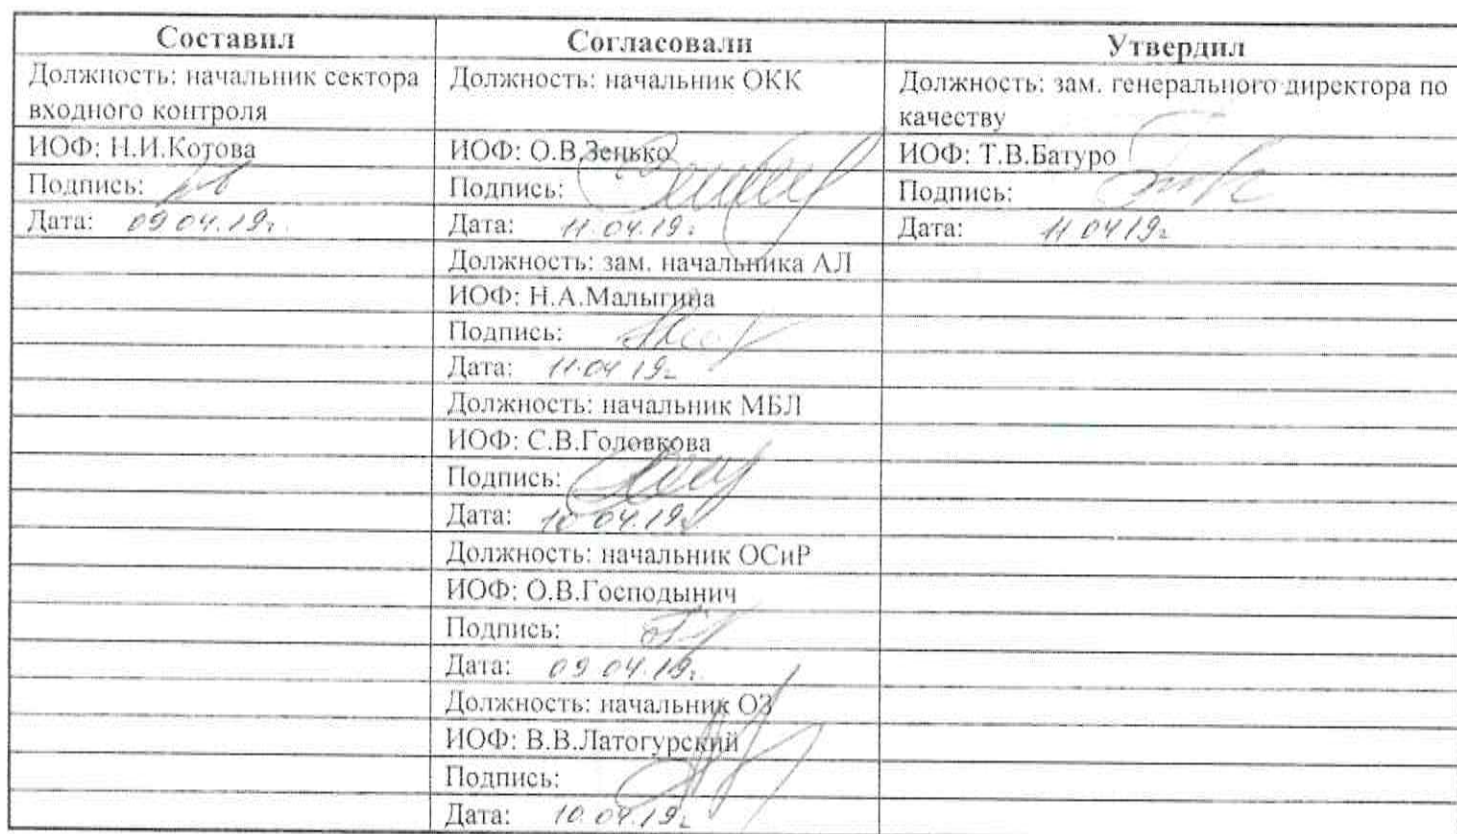 Составил Согласовали Утвердил
Должность: начальник сектора Должность: начальник ОКК Должность: зам. генерального директора по
входного контроля качеству
ИОФ: Н.И.Котова ИОФ: О.В.Зенько ИОФ: Т.В.Батуро
Подпись: Подпись: Подпись:
Дата: 09 04.19г. Дата: 11.04.19г Дата: 11 04 19г
Должность: зам. начальника АЛ
ИОФ: Н.А.Малыгина
Подпись:
Дата: 11.04 19г
Должность: начальник МБЛ
ИОФ: С.В.Головкова
Подпись:
Дата: 10 04.19г
Должность: начальник ОСиР
ИОФ: О.В.Господынич
Подпись:
Дата: 09.04.19г.
Должность: начальник ОЗ
ИОФ: В.В.Латогурский
Подпись:
Дата: 10.04.19г